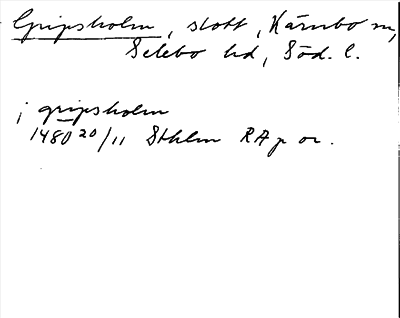 Gripsholm, slott, Kärnbo sn,
Selebo hd, Söd. l.
i gripsholm
1480 20/11 Sthlm RAp or.